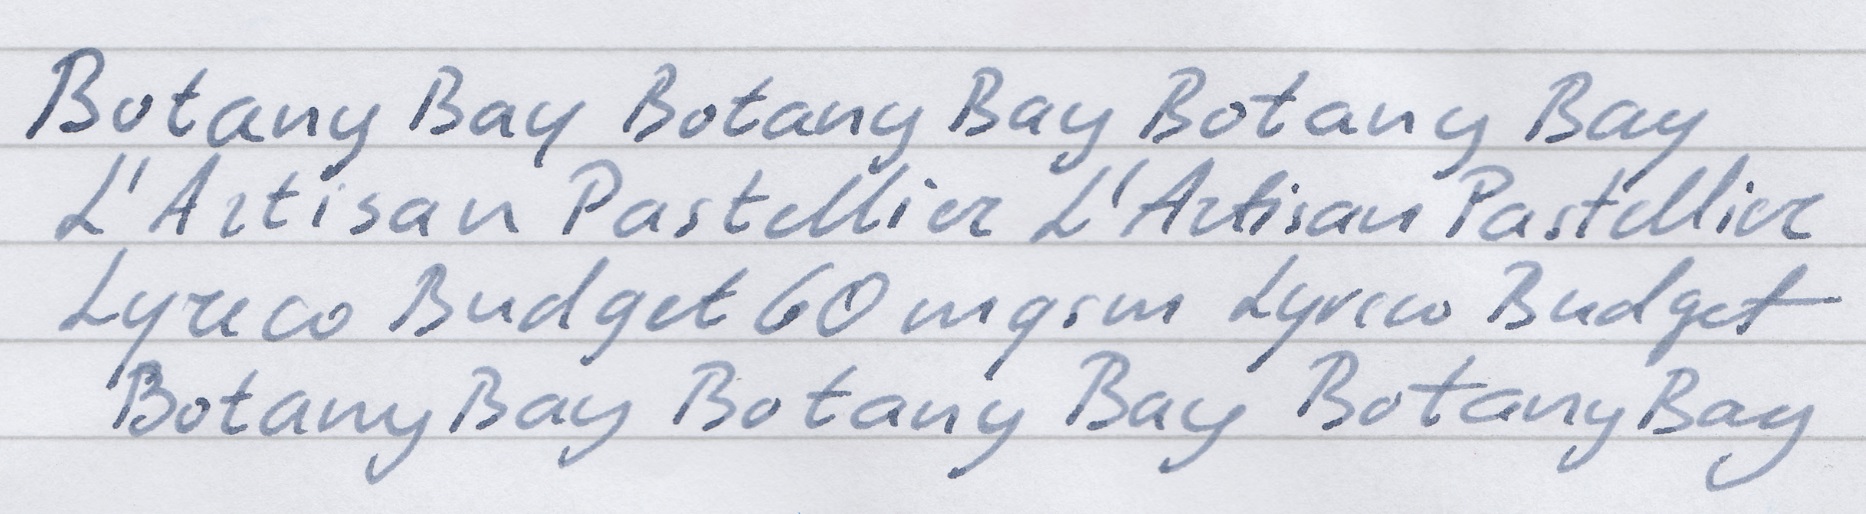 Botany Bay Botany Bay Botany Bay
L'Artisan Pastellier L'Artisan Pastellier
Lyreco Budget 60 mgsm Lyreco Budget
Botany Bay Botany Bay Botany Bay